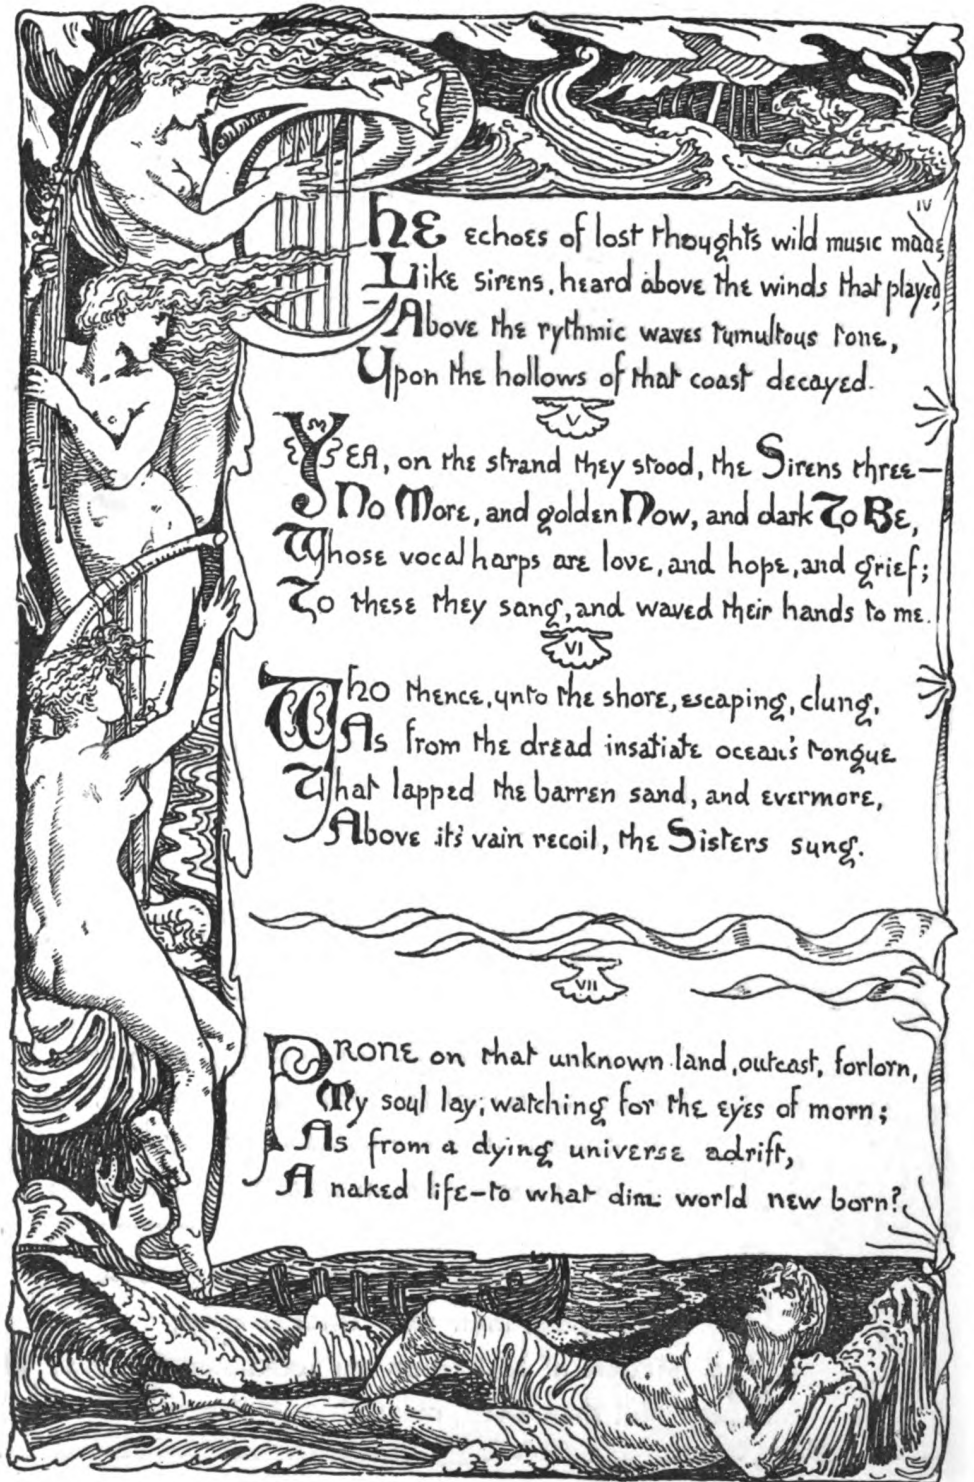 IV
The echoes of lost thoughts wild music made
Like sirens, heard above the winds that played
Above the rythmic waves tumultous tone,
Upon the hollows of that coast decayed.
V
YEA, on the strand they stood, the Sirens three—
No More, and golden Now, and dark To Be,
Whose vocal harps are love, and hope, and grief;
To these they sang, and waved their hands to me.
VI
Who thence, unto the shore, escaping, clung,
As from the dread insatiate ocean's tongue
That lapped the barren sand, and evermore,
Above it's vain recoil, the Sisters sung.
VII
PRONE on that unknown land, outcast, forlorn,
My soul lay, watching for the eyes of morn;
As from a dying universe adrift,
A naked life—to what dim world new born?